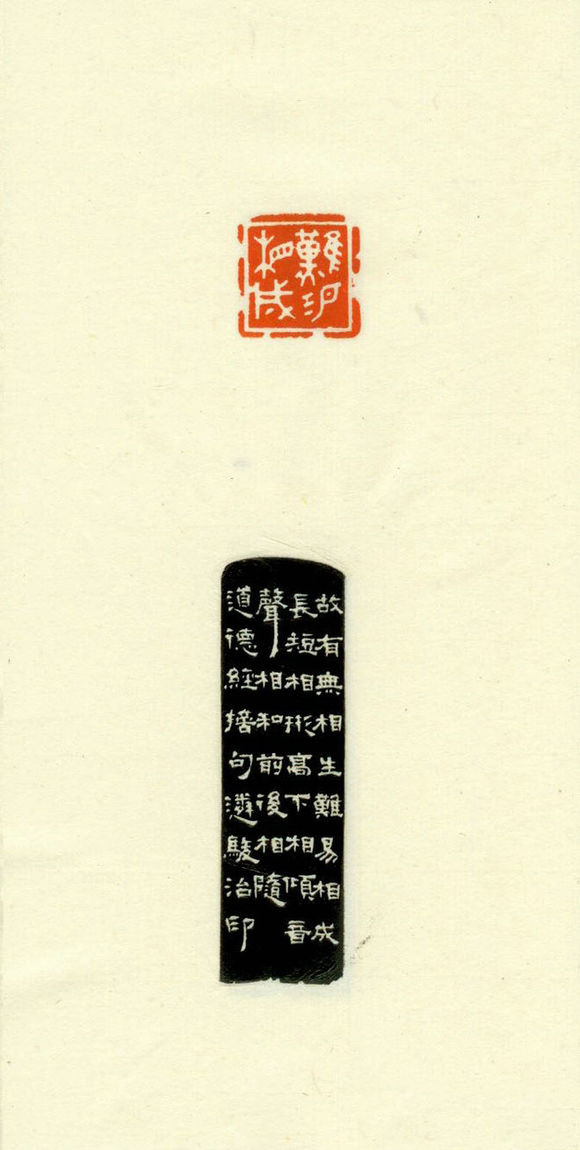 難易
相成
故有無相生難易相成
長短相形高下相傾音
聲相和前後相隨
道德經摘句潾駿治印